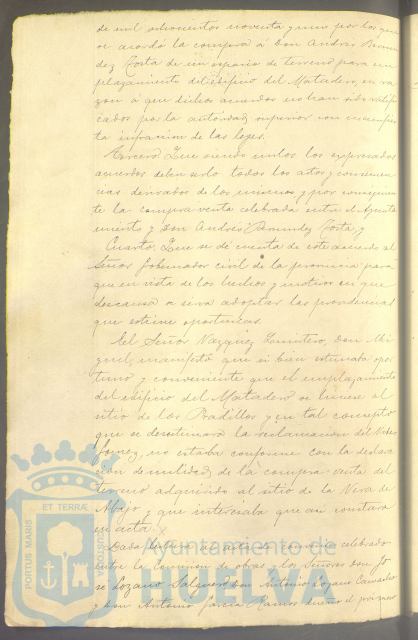 de mil ochocientos noventa y uno por los que
se acordó la compra a Don Andrés Bermu
dez Costa de un espacio de terreno para em
plazamiento del edificio del Matadero, en ra
zon a que dichos acuerdos no han sido ratifi
cados por la autoridad superior con manifies
ta infraccion de las leyes.
Tercero. Que siendo nulos los expresados
acuerdos deben serlo todos los actos y consecuen
cias derivados de los mismos y por consiguien
te la compra venta celebrada entre el Ayunta
miento y Don Andrés Bermudez Costa, y
Cuarto. Que se dé cuenta de este acuerdo al
Señor Gobernador civil de la provincia para
que en vista de los hechos y motivos en que
descansa se sirva adoptar las providencias
que estime oportunas.
El Señor Vazquez Don Mi
guel, manifestó que si bien estimaba opor
tuno y conveniente que el emplazamiento
del edificio del Matadero se hiciere al
sitio de los Pradillos y en tal concepto
que se desestimara la reclamacion del
no estaba conforme con la declara
cion de nulidad de la compra-venta del
terreno adquirido al sitio de la Vera de
Abajo y que interesaba que así constara
en acta.
Dada lectura del convenio celebrado
entre la Comision de obras y los Señores Don Jo
sé Lozano Don Antonio Lozano
y Don Antonio Garcia Ramos dueño el primero
PORTUS MARIS
ET TERRÆ
CUSTODIA
Ayuntamiento de
HUELVA